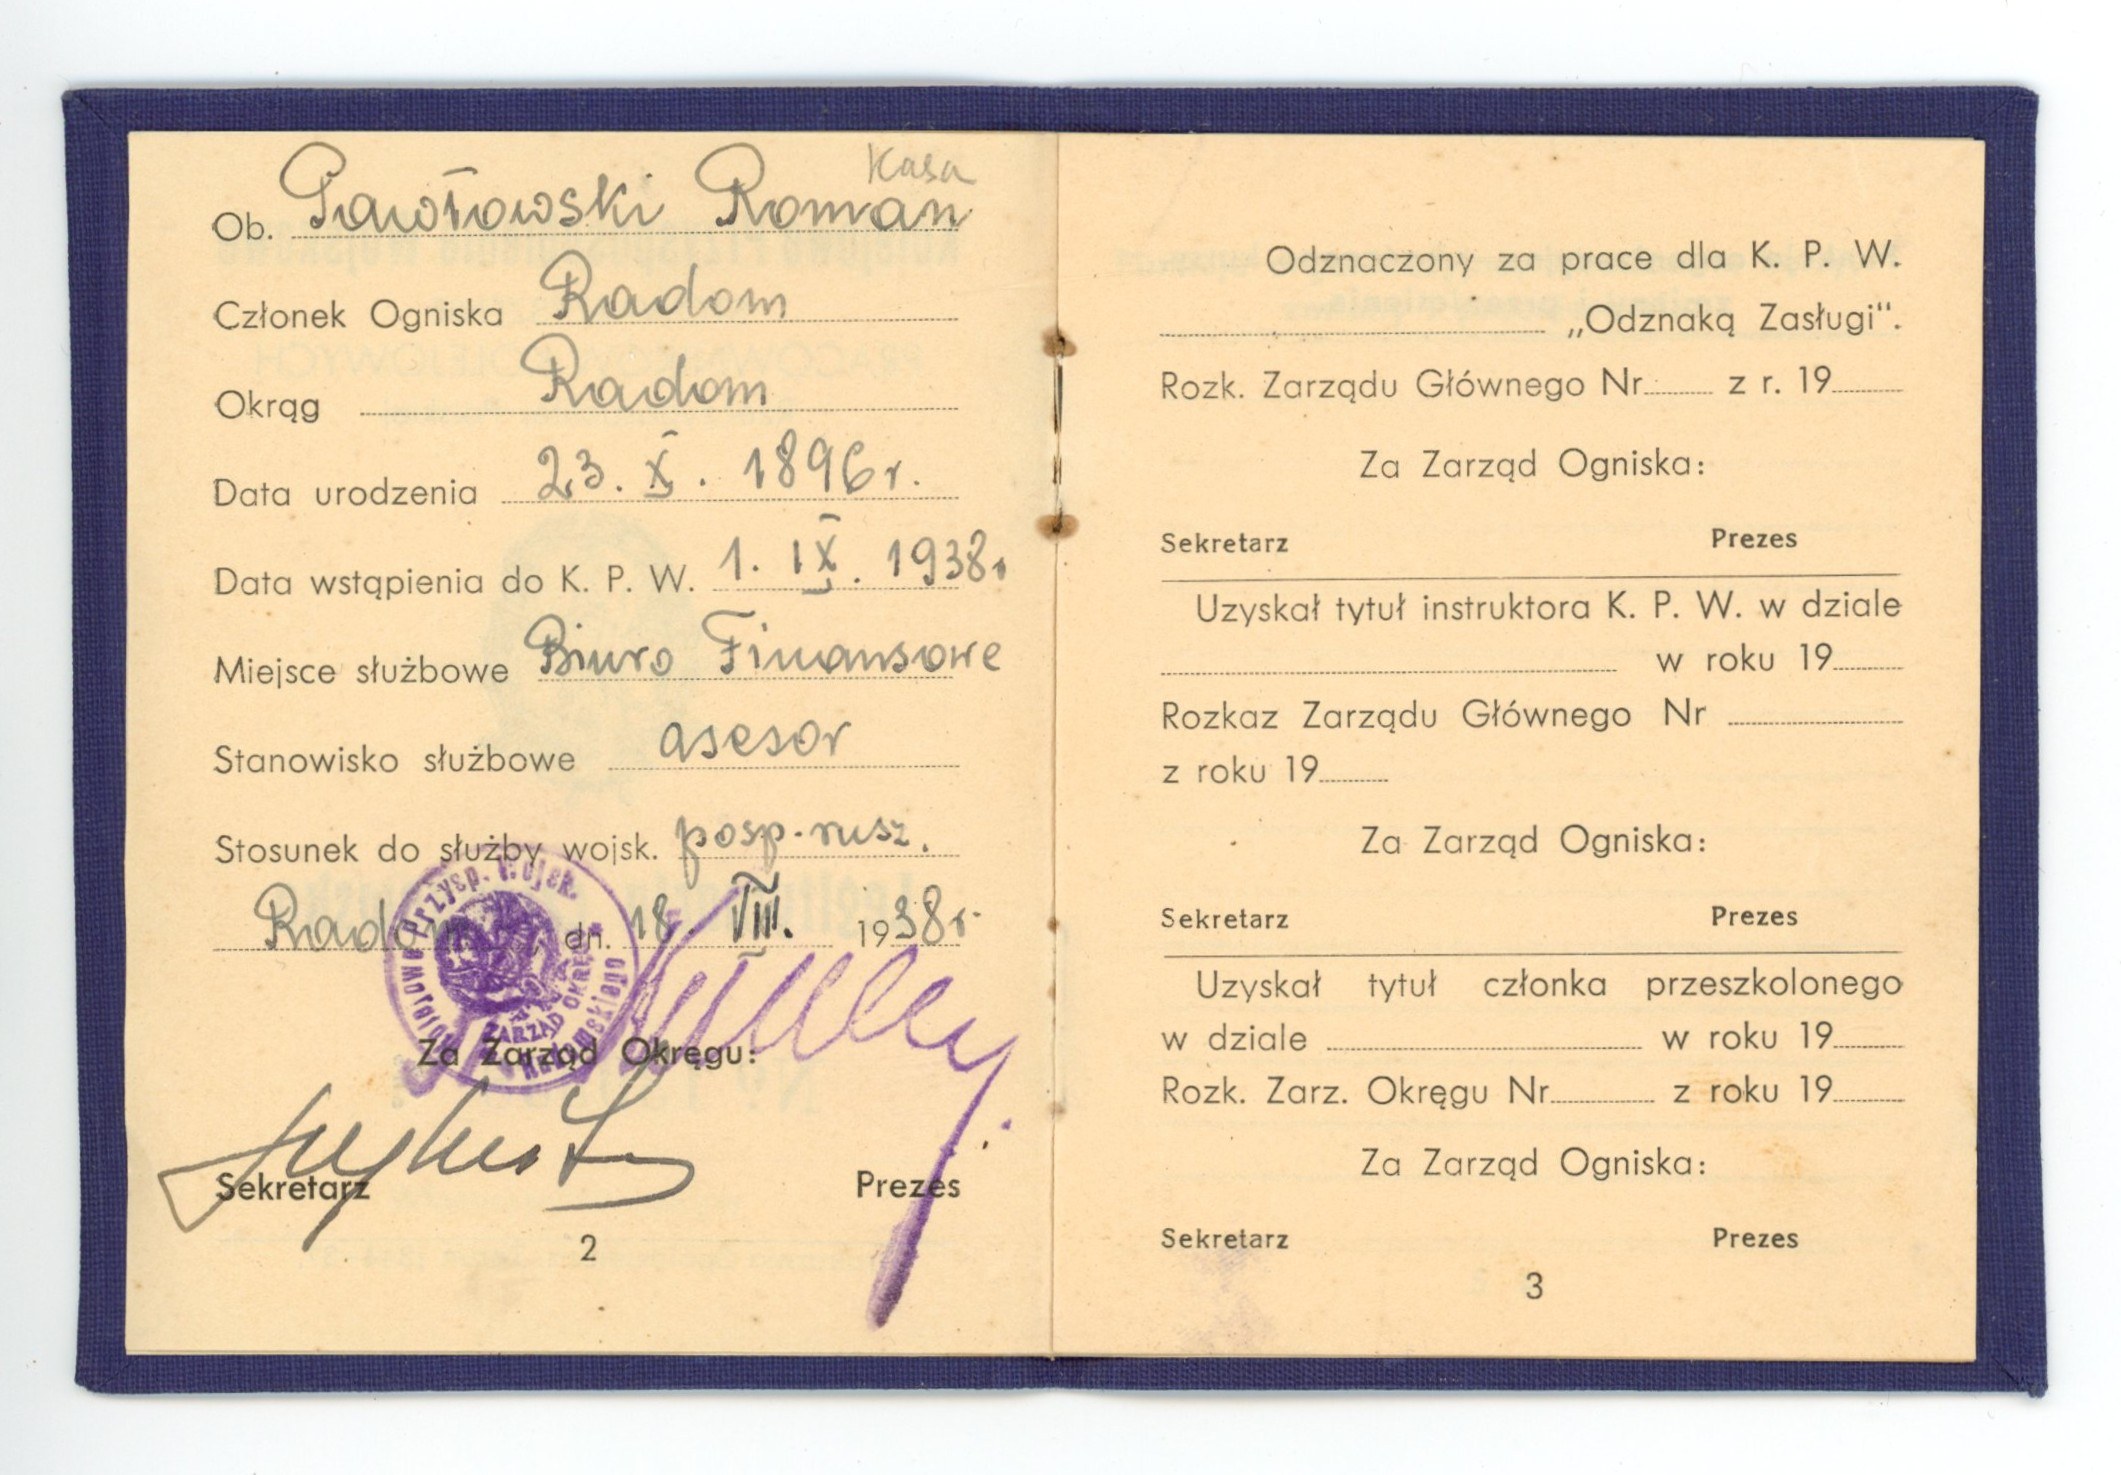 Kasa
Ob. Pawłowski Roman
Członek Ogniska Radom
Okrąg Radom
Data urodzenia 23. X. 1896 r.
Data wstąpienia do K. P. W. 1. IX. 1938 r
Miejsce służbowe Biuro Finansowe
Stanowisko służbowe asesor
Stosunek do służby wojsk. posp. rusz.
Radom dn. 18. VIII. 1938 r.
Przysp. Wojsk.
ZARZĄD OKRĘ
Za Zarząd Okręgu:
Sekretarz Prezes
2
Odznaczony za prace dla K. P. W.
„Odznaką Zasługi".
Rozk. Zarządu Głównego Nr z r. 19
Za Zarząd Ogniska:
Sekretarz Prezes
Uzyskał tytuł instruktora K. P. W. w dziale
w roku 19
Rozkaz Zarządu Głównego Nr
z roku 19
Za Zarząd Ogniska:
Sekretarz Prezes
Uzyskał tytuł członka przeszkolonego
w dziale w roku 19
Rozk. Zarz. Okręgu Nr z roku 19
Za Zarząd Ogniska:
Sekretarz Prezes
3